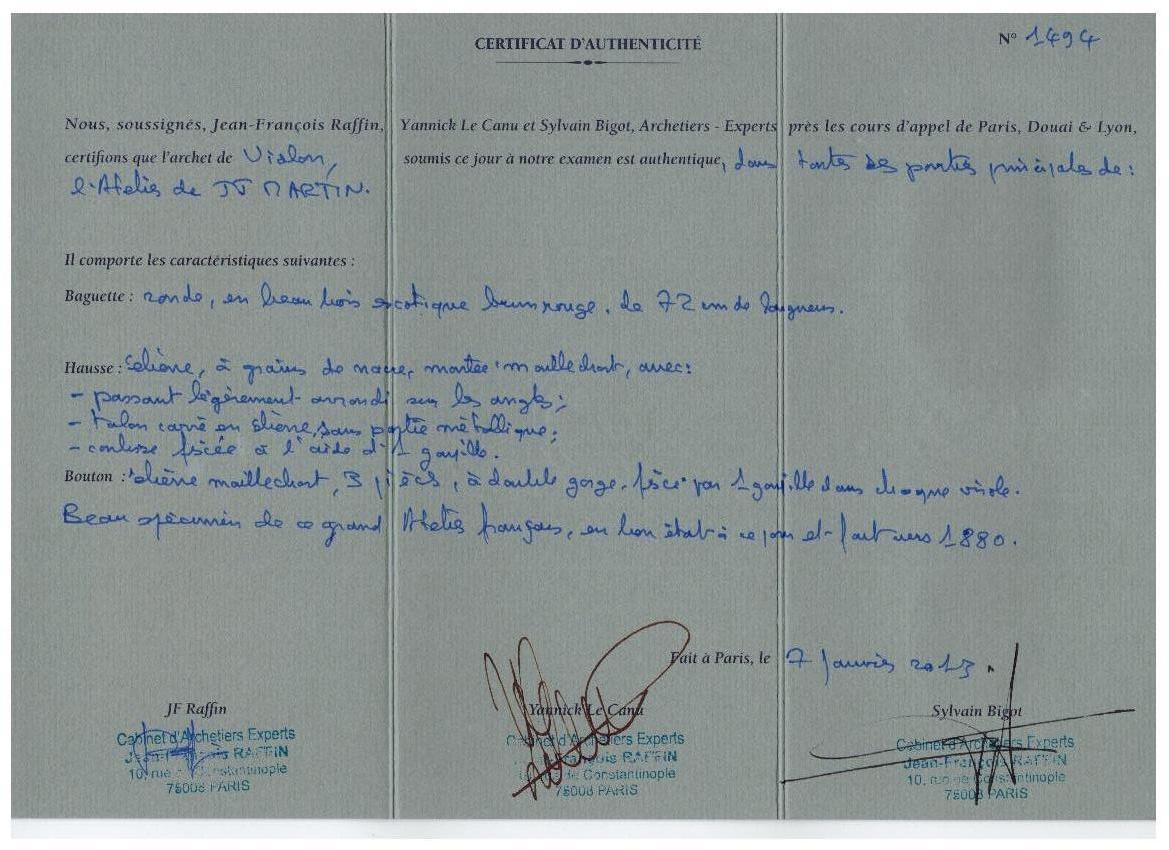 CERTIFICAT D'AUTHENTICITÉ
N° 1494
Nous, soussignés, Jean-François Raffin, Yannick Le Canu et Sylvain Bigot, Archetiers - Experts près les cours d'appel de Paris, Douai & Lyon,
certifions que l'archet de Violon, soumis ce jour à notre examen est authentique, dans toutes ses parties principales de:
l'Atelier de JJ MARTIN.
Il comporte les caractéristiques suivantes :
Baguette : ronde, en beau bois exotique brun rouge, de 72 cm de longueur.
Hausse : ébène, à grains de nacre, montée maillechort, avec:
- passant légèrement arrondi sur les angles;
- talon carré en ébène, sans partie métallique;
- coulisse fixée à l'aide d'1 goupille.
Bouton : ébène maillechort, 3 pièces, à double gorge, fixé par 1 goupille dans chaque virole.
Beau spécimen de ce grand Atelier français, en bon état à ce jour et fait vers 1880.
Fait à Paris, le 7 Janvier 2013.
JF Raffin
Yannick Le Canu
Sylvain Bigot
Cabinet d'Archetiers Experts
Jean-François RAFFIN
10, rue de Constantinople
75008 PARIS
Cabinet d'Archetiers Experts
Jean-François RAFFIN
10, rue de Constantinople
75008 PARIS
Cabinet d'Archetiers Experts
Jean-François RAFFIN
10, rue de Constantinople
75008 PARIS